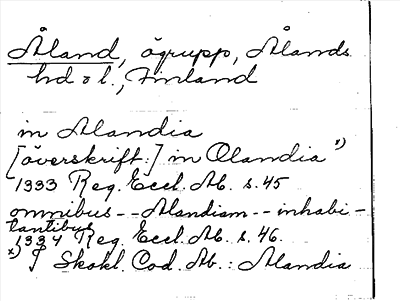 Åland, ögrupp, Ålands
hd o l., Finland
in Alandia
[överskrift:] in Olandia x)
1333 Reg. Eccl. Ab. s. 45
omnibus -- Alandiam -- inhabi-
tantibus
1334 Reg. Eccl. Ab. s. 46.
x) I Skokl. Cod. Ab.: Alandia